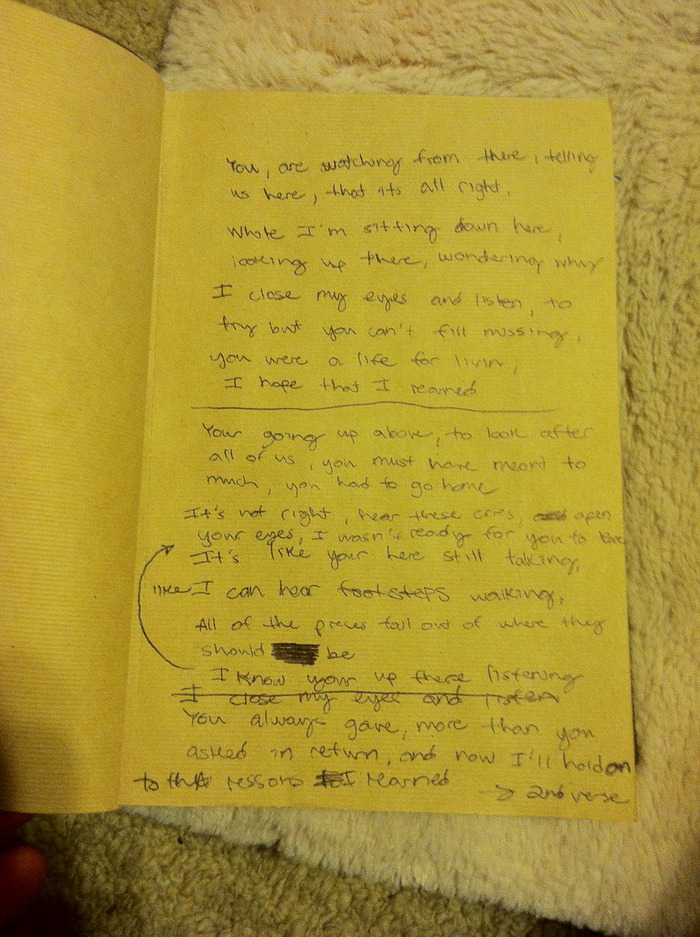 You, are watching from there, telling
us here, that its all right.
While I'm sitting down here,
looking up there, wondering why
I close my eyes and listen, to
try but you can't fill missing,
you were a life for livin,
I hope that I learned
Your going up above, to look after
all of us, you must have meant to
much, you had to go home
It's not right, hear these cries, open
your eyes, I wasn't ready for you to
It's like your here still talking,
like I can hear footsteps walking,
All of the pieces fall out of where they
should be
I know your up there listening
I close my eyes and listen
You always gave, more than you
asked in return, and now I'll hold on
to the lessons I learned
-> 2nd verse